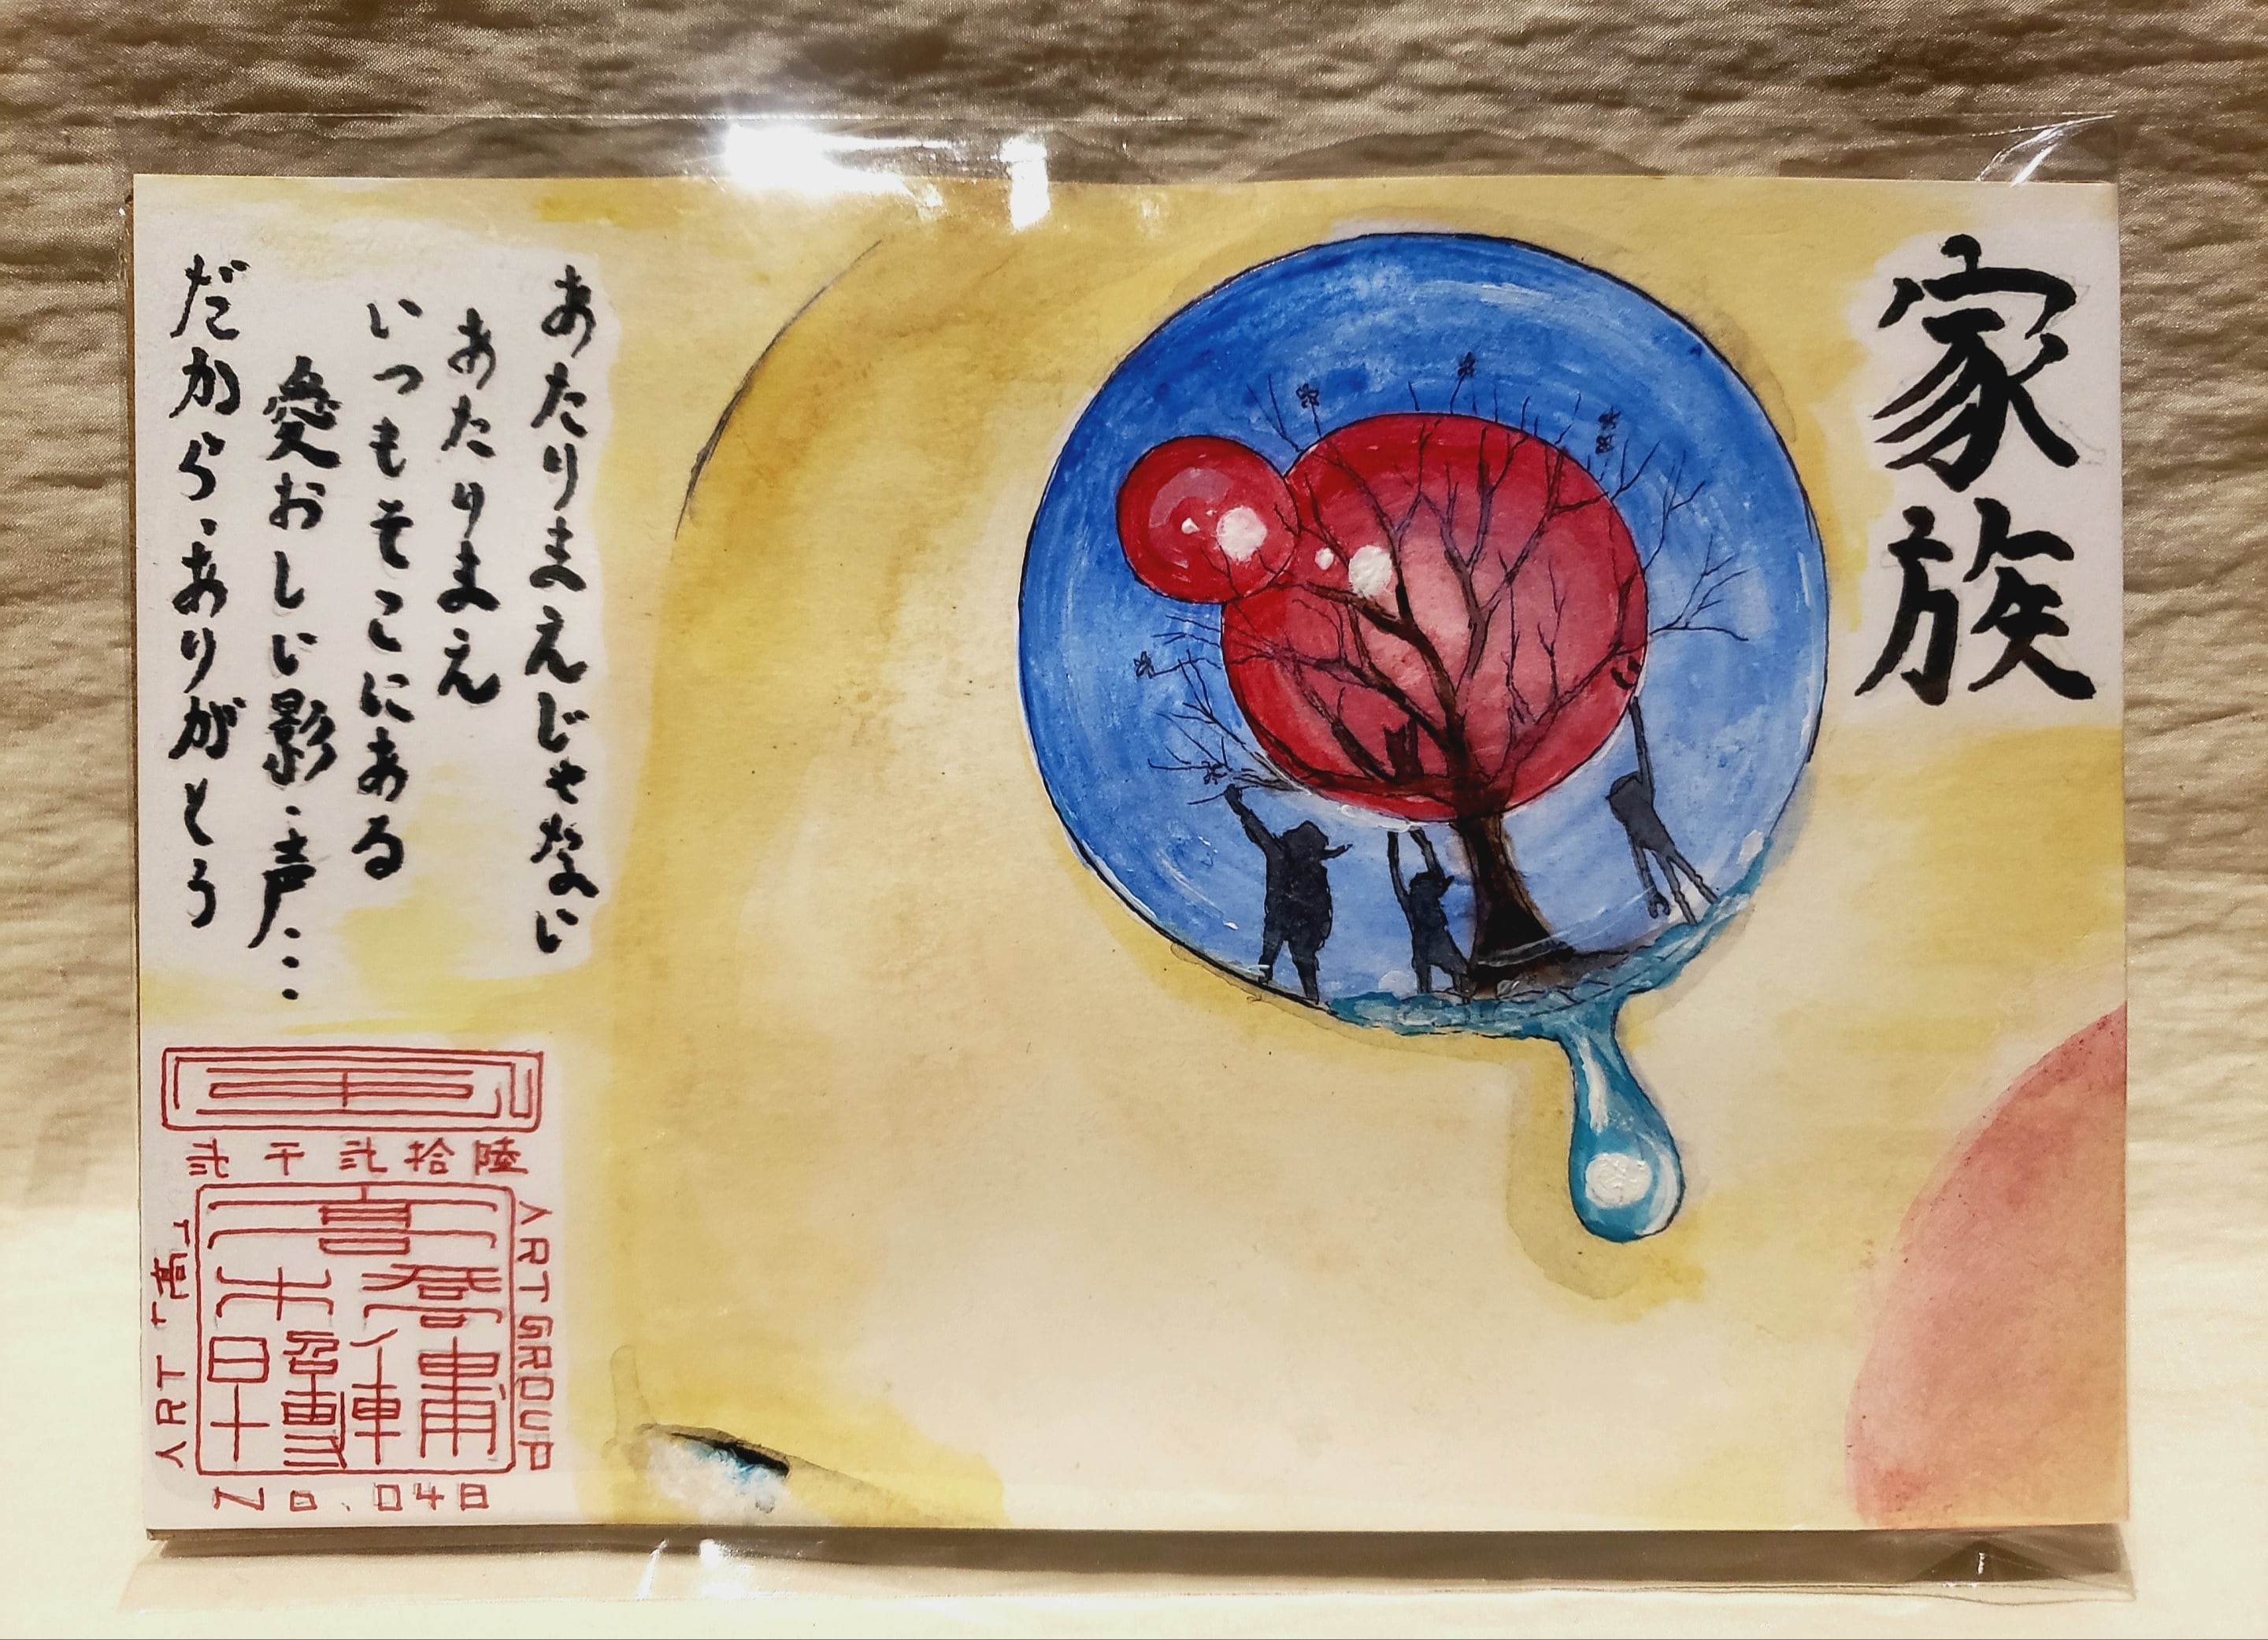 家族
あたりまえじゃない
あたりまえ
いつもそこにある
愛おしい影・声・・・
だから、ありがとう
弐千弐拾陸
ART GROUP
ART「高」
No.048